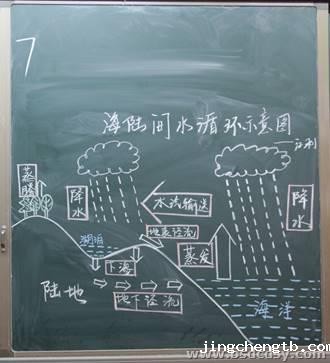 7
海陆间水循环示意图
蒸腾
降水
水汽输送
降水
地表径流
湖泊
蒸发
下渗
陆地
地下径流
海洋
www.jingchengtb.com